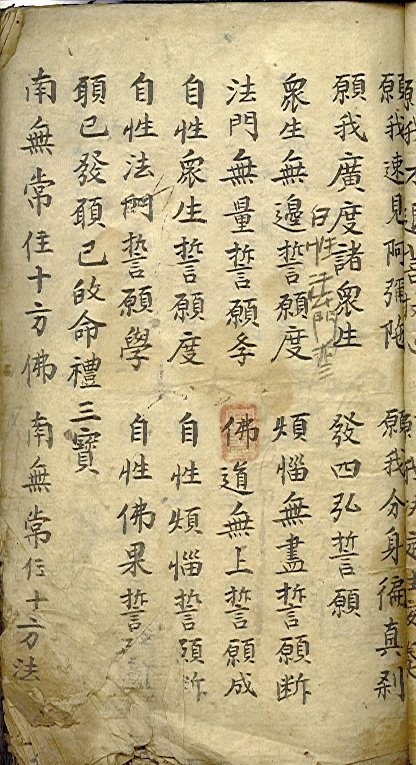 願我速見阿彌陁 願我分身徧真刹
願我廣度諸衆生 發四弘誓願
自性法門誓
衆生無邊誓願度 煩惱無盡誓願断
法門無量誓願斈 佛道無上誓願成
自性衆生誓願度 自性煩惱誓願断
自性法門誓願學 自性佛果誓
願已發願已皈命禮三寶
南無常住十方佛 南無常住十方法